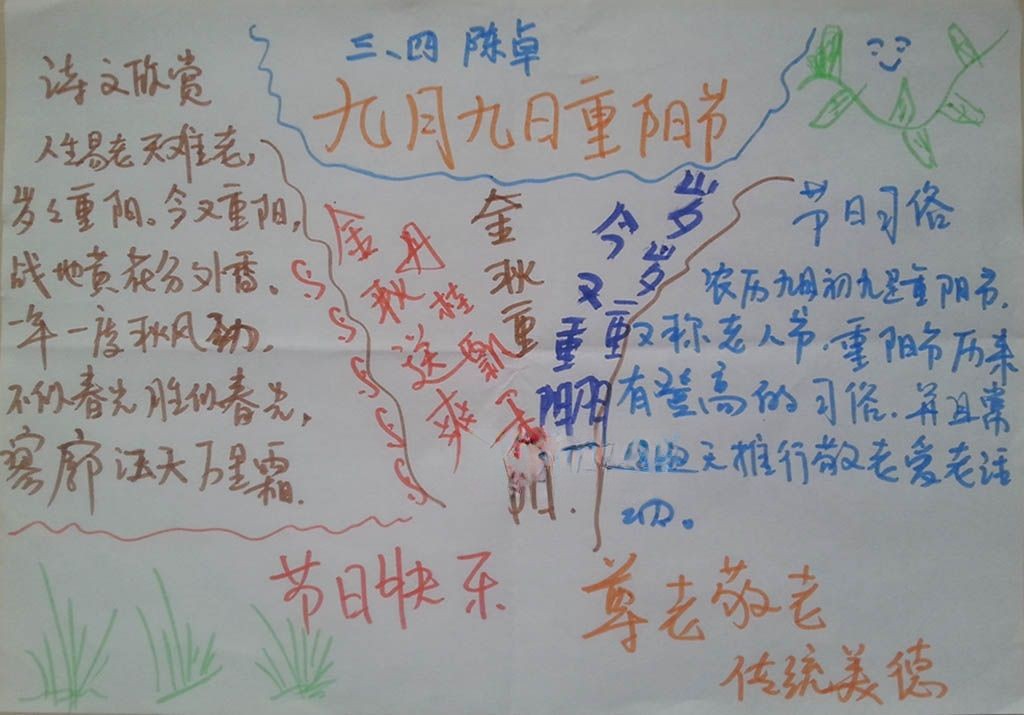 三、四 陈卓
九月九日重阳节
诗文欣赏
人生易老天难老,
岁岁重阳。今又重阳,
战地黄花分外香。
一年一度秋风劲,
不似春光胜似春光,
寥廓江天万里霜.
金秋送爽
丹桂飘香
金秋重阳.
岁岁重阳
今又重阳
节日习俗
农历九月初九是重阳节.
又称老人节.重阳节历来
有登高的习俗.并且常
天推行敬老爱老活
动。
节日快乐
尊老敬老
传统美德